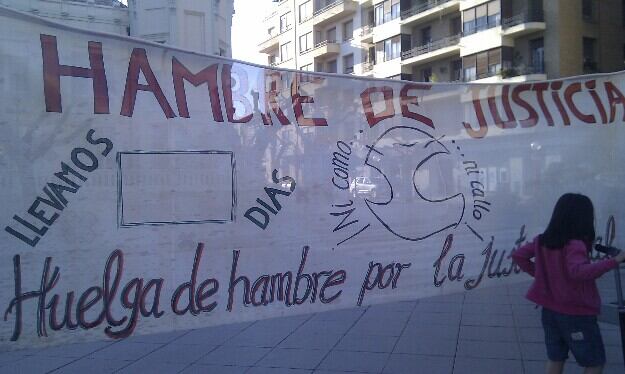 HAMBRE DE JUSTICIA
LLEVAMOS DIAS
Ni como ni callo
Huelga de hambre por la